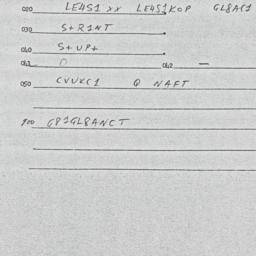 020 LE4S1 xx LE4S1KOP GL8AC1
030 S+R1NT
040 S+UP+
041 0 042 —
050 CVVKC1 Q NAFT
900 GP1GL8ANCT